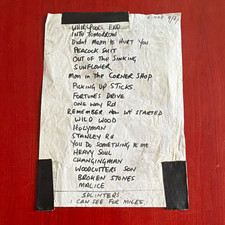 WHIRLPOOLS END
INTO TOMORROW
Didnt Mean To HURT YOU
PEACOCK SUIT
OUT OF THE SINKING
SUNFLOWER
Man in the CORNER SHOP
PICKING UP STICKS
FORTUNES DRIVE
ONE WAY Rd
REMEMBER How WE STARTED
WILD WOOD
HOLYMAN
STANLEY Rd
YOU DO SOMETHING To ME
HEAVY SOUL
CHANGINGMAN
WOODCUTTERS SON
BROKEN STONES
MALICE
SPLINTERS.
I CAN SEE FOR MILES.